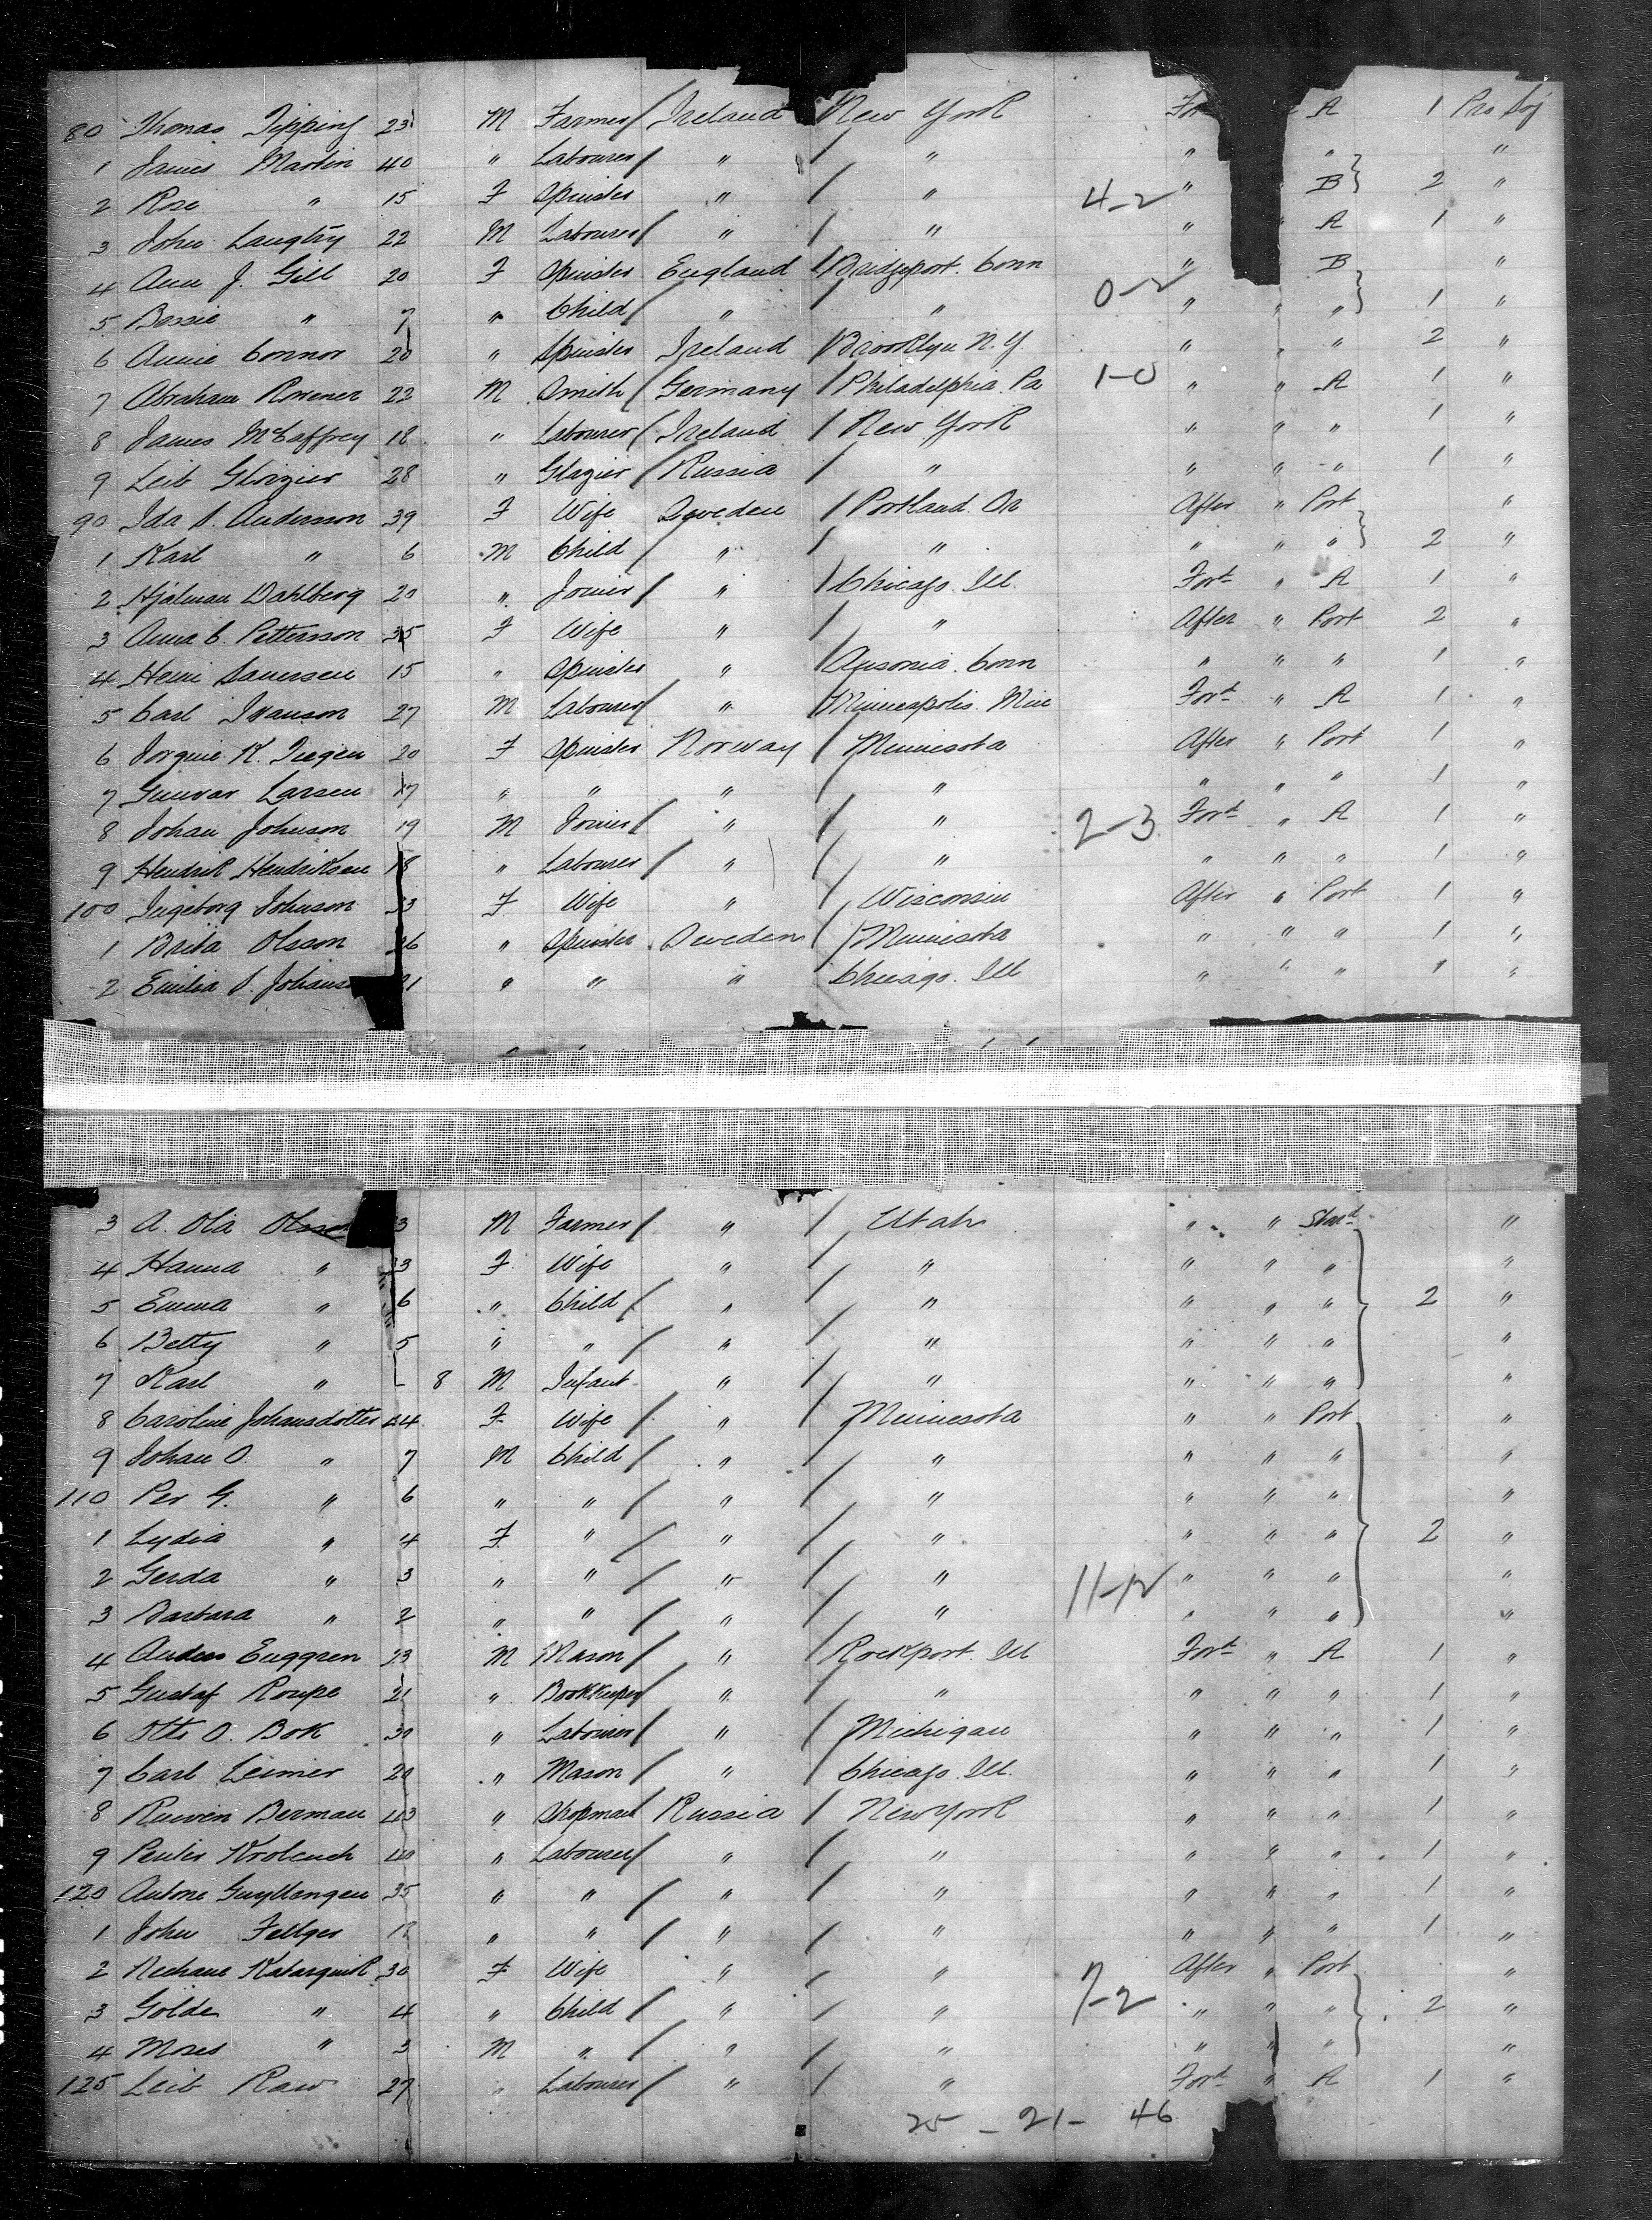 80 Thomas Tipping 23 M Farmer / Ireland New York A 1 Pro Soj
1 James Martin 40 " Labourer / " / " " " "
2 Rose " 15 F Spinster " / " 4-2 " B } 2 "
3 John Langtry 22 M Labourer / " / " " " A 1 "
4 Ann J. Gill 20 F Spinster England / Bridgeport. Conn " B "
5 Bessie " 7 " Child / " / " 0-2 " " " } 1 "
6 Annie Connor 20 " Spinster Ireland / Brooklyn N.Y. " " " 2 "
7 Abraham 22 M Smith / Germany / Philadelphia. Pa 1-0 " " A 1 "
8 James McCaffrey 18 " Labourer / Ireland / New York " " " 1 "
9 Leib 28 " Glazier / Russia / " " " " 1 "
90 Ida S. Andersson 39 F Wife Sweden / Portland. Or After " Port "
1 Karl " 6 M Child / " / " " " " } 2 "
2 Hjalmar Dahlberg 20 " Joiner / " / Chicago. Ill. Ford " A 1 "
3 Anna C. Pettersson 35 F Wife " / " After " Port 2 "
4 15 " Spinster " / Ansonia. Conn " " " 1 "
5 Carl 27 M Labourer / " / Minneapolis. Min Ford " A 1 "
6 K. 20 F Spinster Norway / Minnesota After " Port 1 "
7 Gunvor Larsen 17 " " " / " " " " 1 "
8 Johan Johnson 19 M Joiner / " / " 2-3 Ford " A 1 "
9 Hendrik Hendriksen 18 " Labourer / " / " " " " 1 "
100 Ingeborg Johnson 33 F Wife " / Wisconsin After " Port 1 "
1 Brita Olsson " Spinster Sweden / Minnesota " " " 1 "
2 Emilia S. " " " Chicago. Ill " " " 1 "
3 A. Ola M Farmer / " / Utah " " Stard "
4 Hanna " 33 F Wife " / " " " " "
5 Emma " 6 " Child / " / " " " " } 2 "
6 Betty " 5 " " / " / " " " " "
7 Karl " - 8 M Infant " / " " " " "
8 Caroline Johansdotter 44 F Wife " / Minnesota " " Port "
9 Johan O. " 7 M Child / " / " " " " "
110 Per G. " 6 " " / " / " " " " "
1 Lydia " 4 F " / " / " " " " } 2 "
2 Gerda " 3 " " / " / " 11-12 " " " "
3 Barbara " 2 " " / " / " " " " "
4 Anders Enggren 23 M Mason / " / Rockport. Ill Ford " A 1 "
5 Gustaf Roupe 21 " Bookkeeper " " " " " 1 "
6 Otto O. Bok 30 " Labourer / " / Michigan " " " 1 "
7 Carl Leimer 20 " Mason / " / Chicago. Ill. " " " 1 "
8 Ruwen Berman 43 " Shopman Russia / New York " " " 1 "
9 40 " Labourer / " / " " " " 1 "
120 Antone 35 " " / " / " " " " 1 "
1 John Fellger 18 " " / " / " " " " 1 "
2 30 F Wife " / " After " Port "
3 Golde " 4 " Child / " / " 7-2 " " " } 2 "
4 Moses " 3 M " / " / " " " " "
125 Leib Raw 27 " Labourer / " / " Ford " A 1 "
25 - 21 - 46